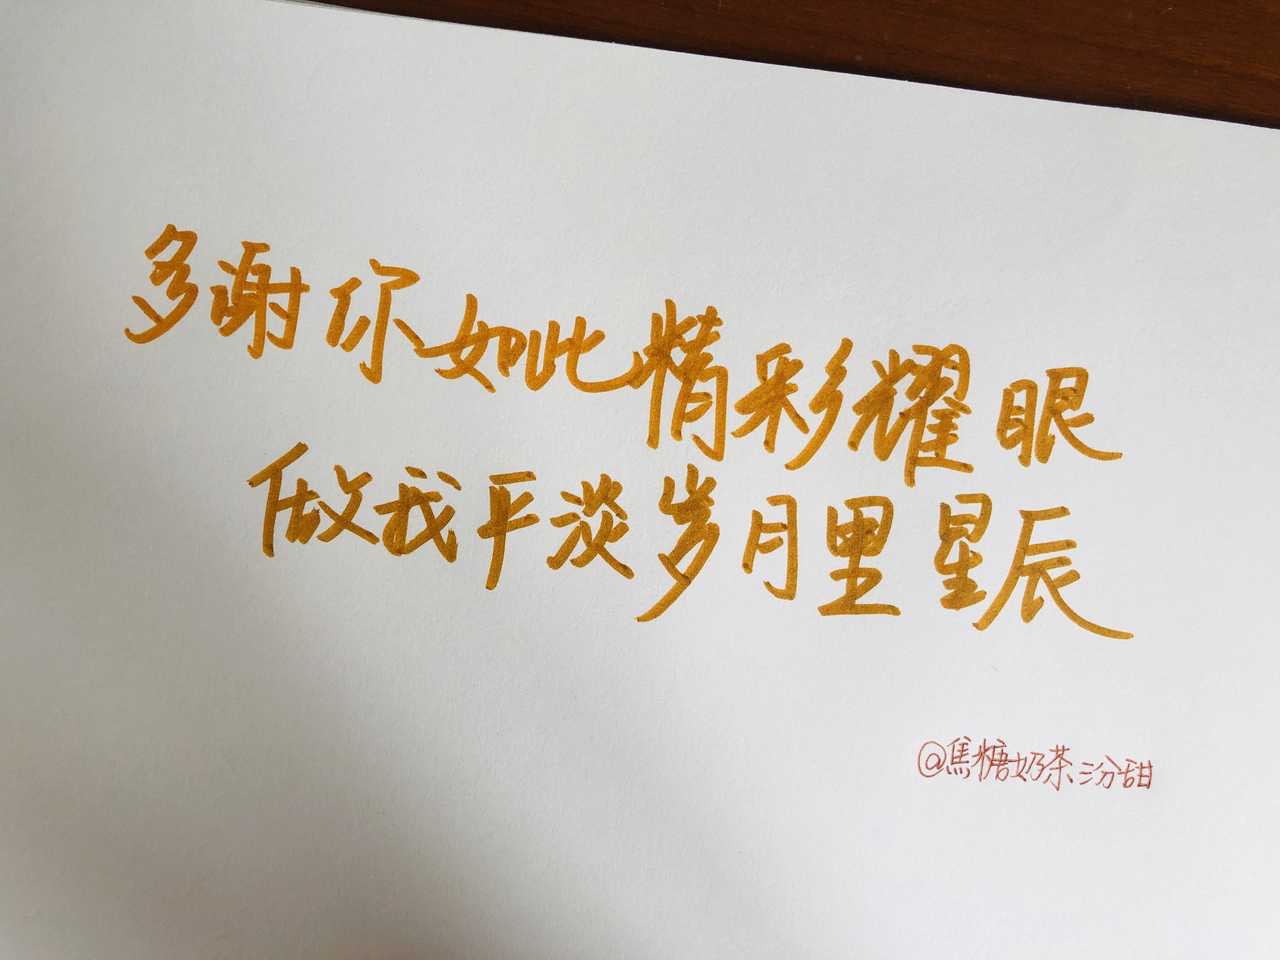 多谢你如此精彩耀眼
做我平淡岁月里星辰
@焦糖奶茶三分甜